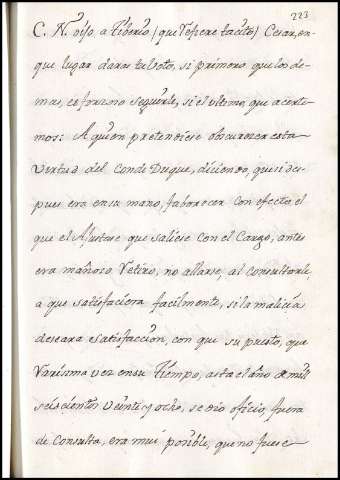 223
C. N. diso, a Tiberio (que refiere tacito) Cesar, en-
que lugar daras tu boto, si primero que los de-
mas, es forzoso seguirle, si el ultimo, que acerte-
mos: A quien pretendiese obscurecer esta
virtud del Conde Duque, diciendo, que si des-
pues era en su mano, faborecer con efecto el
que el Ajustase que saliese con el Cargo, antes
era mañoso retiro, no allarse, al consultarle,
a que satisfaciera facilmente, si la malicia
deseara satisfaccion, con que su puesto, que
rarisima vez en su Tiempo, asta el año de mill
seiscientos veinte y ocho, se dio oficio, fuera
de Consulta, era mui posible, que no fuese